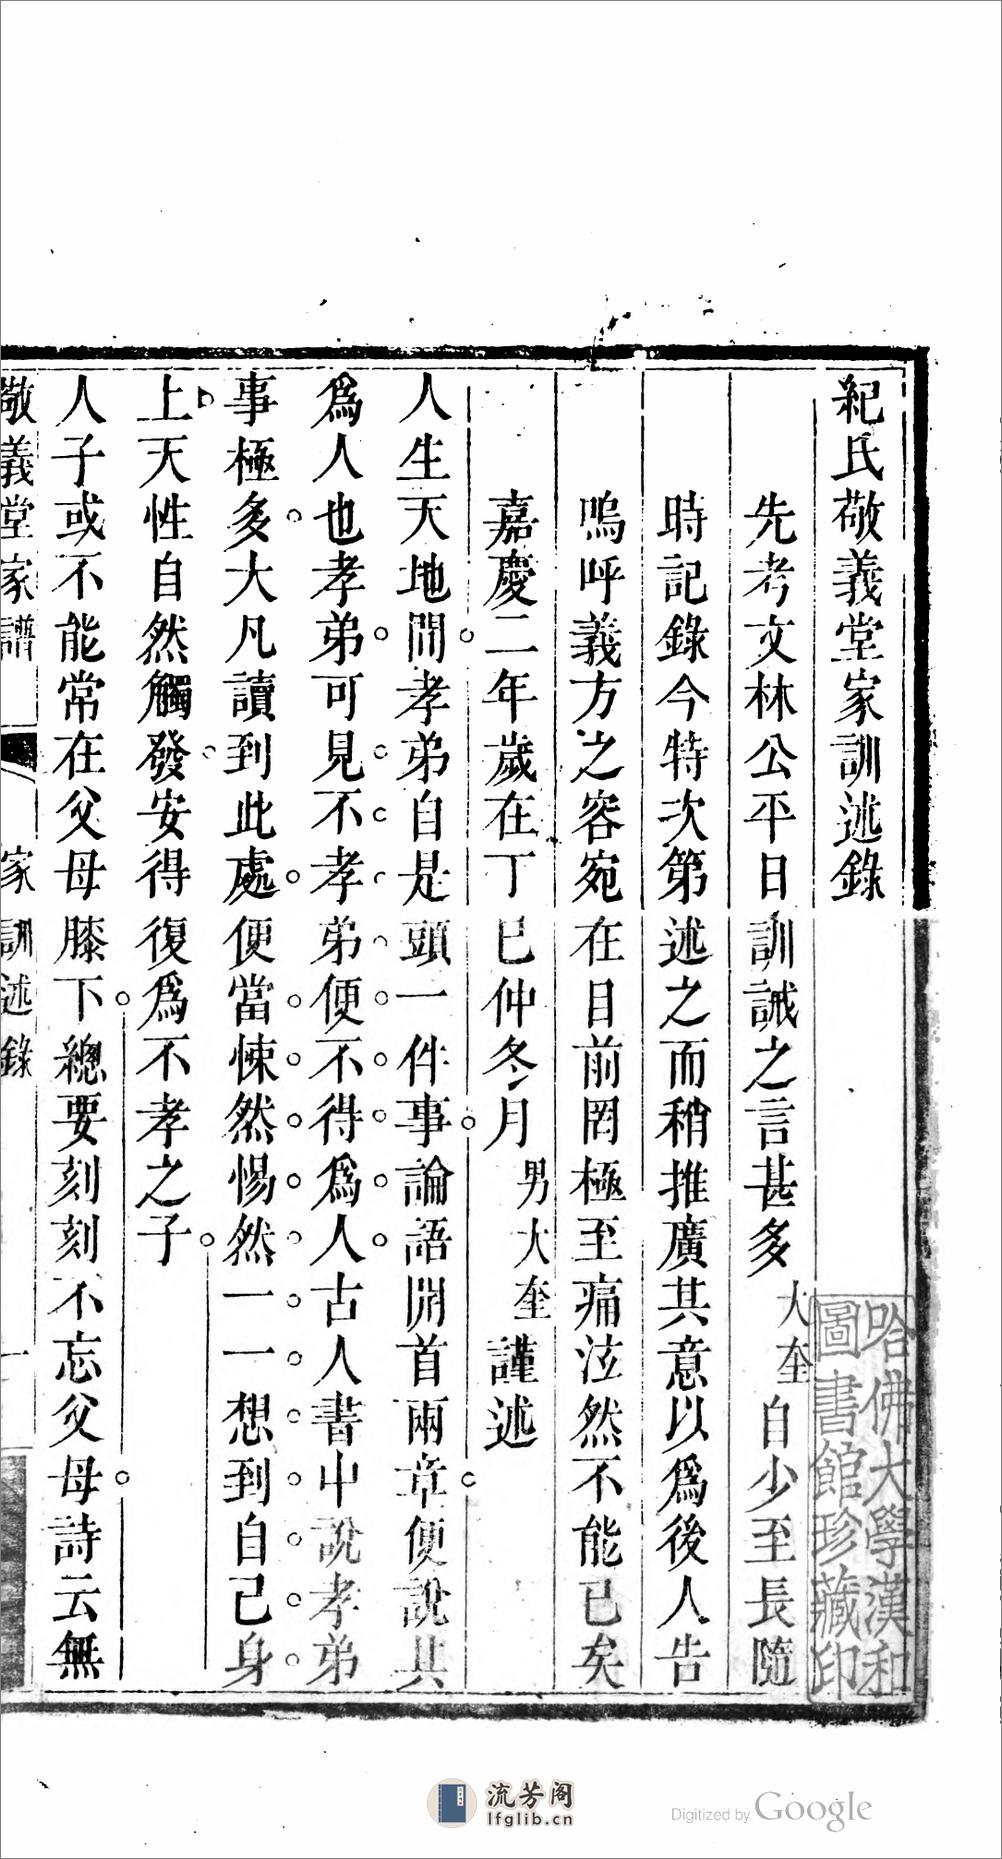 紀氏敬義堂家訓述錄
先考文林公平日訓誡之言甚多大奎自少至長隨
時記錄今特次第述之而稍推廣其意以爲後人告
嗚呼義方之容宛在目前罔極至痛泫然不能已矣
嘉慶二年歲在丁巳仲冬月男大奎謹述
人生天地間孝弟自是頭一件事論語開首兩章便說其
爲人也孝弟可見不孝弟便不得爲人古人書中說孝弟
事極多大凡讀到此處便當悚然惕然一一想到自己身
上天性自然觸發安得復爲不孝之子
人子或不能常在父母膝下總要刻刻不忘父母詩云無
敬義堂家譜 家訓述錄 一
哈佛大學漢和
圖書館珍藏印
流芳阁
lfglib.cn
Digitized by Google